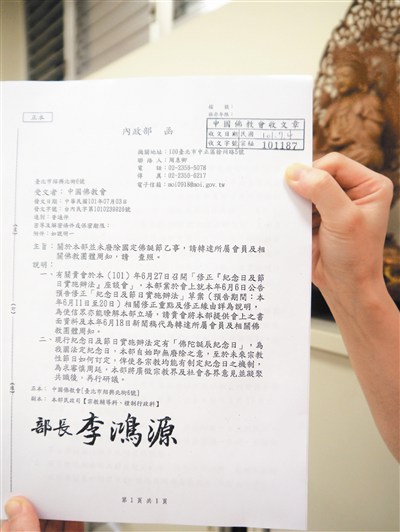 正本
檔　號：
保存年限：
中國佛教會收文章
收文日期 民國 101.7.4
收文字號 宗秘 101187
內政部　函
機關地址：100臺北市中正區徐州路5號
聯絡人：
電　話：02-2356-5078
傳　真：02-2356-6217
電子信箱：moi5916@moi.gov.tw
臺北市紹興北街6號
受文者：中國佛教會
發文日期：中華民國101年07月03日
發文字號：台內民字第1010239928號
速別：普通件
密等及解密條件或保密期限：
附件：如說明一
主旨：關於本部並未廢除國定佛誕節乙事，請轉達所屬會員及相
關佛教團體周知，請　查照。
說明：
一、有關貴會於本（101）年6月27日召開「修正『紀念日及節
日實施辦法』座談會」，本部業於會上就本年6月6日公告
預告修正「紀念日及節日實施辦法」草案（預告期間：本
年6月11日至20日）相關修正重點及修正緣由詳為說明，
為使信眾亦能瞭解本部立場，請貴會將本部提供會上之書
面資料及本年6月18日新聞稿代為轉達所屬會員及相關佛
教團體周知。
二、現行紀念日及節日實施辦法定有「佛陀誕辰紀念日」，為
我國法定紀念日，本部自始即無廢除之意，至於未來宗教
性節日如何訂定，俾使各宗教均能有制定紀念日之機制，
為求審慎周延，本部將廣徵宗教界及社會各界意見並凝聚
共識後，再行研議。
正本：中國佛教會[臺北市紹興北街6號]
副本：本部民政司【宗教輔導科、禮制行政科】
部長 李鴻源
第1頁 共1頁